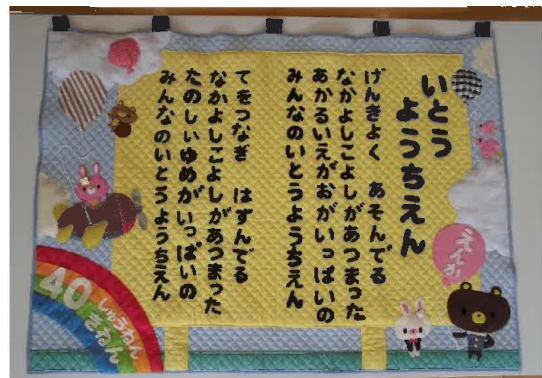 いとう
ようちえん
えんか
げんきよく　あそんでる
なかよしこよしがあつまった
あかるいえがおがいっぱいの
みんなのいとうようちえん
てをつなぎ　はずんでる
なかよしこよしがあつまった
たのしいゆめがいっぱいの
みんなのいとうようちえん
40
しゅうねん
きねん